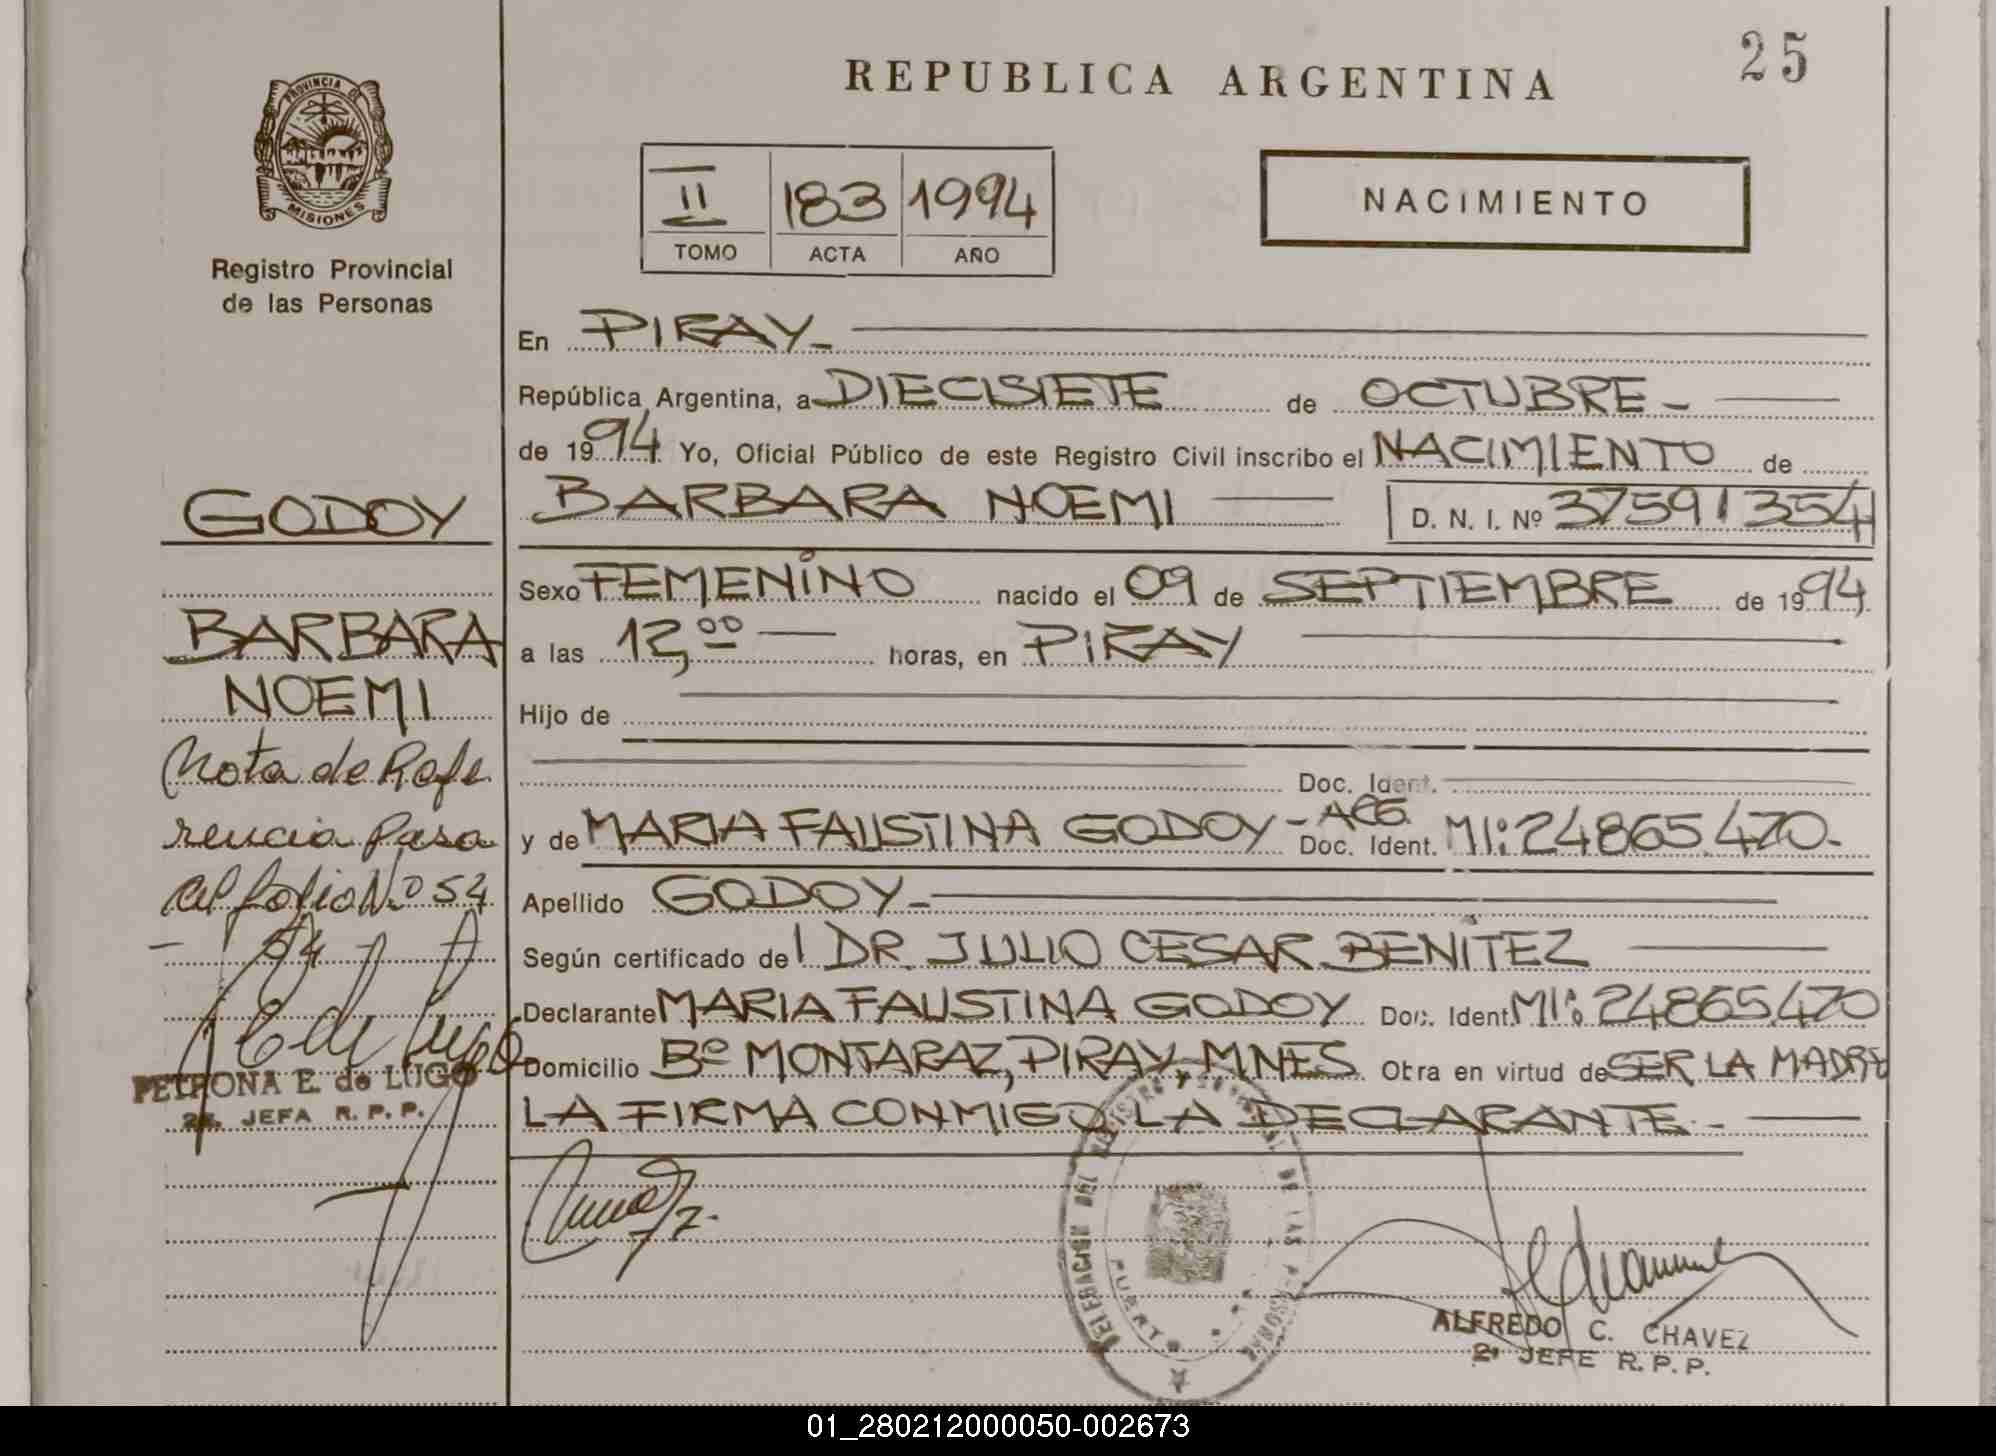 REPUBLICA ARGENTINA
25
PROVINCIA DE
MISIONES
Registro Provincial
de las Personas
II 183 1994
TOMO ACTA AÑO
NACIMIENTO
En PIRAY.-
República Argentina, a DIECISIETE de OCTUBRE.-
de 1994. Yo, Oficial Público de este Registro Civil inscribo el NACIMIENTO de
BARBARA NOEMI D. N. I. Nº 37591354
Sexo FEMENINO nacido el 09 de SEPTIEMBRE de 1994.
a las 12,00 horas, en PIRAY
Hijo de
Doc. Ident.
y de MARIA FAUSTINA GODOY - Doc. Ident. MI: 24865.470.-
Apellido GODOY.-
Según certificado del DR. JULIO CESAR BENITEZ
Declarante MARIA FAUSTINA GODOY Doc. Ident. MI: 24865.470
Domicilio Bº MONTARAZ, PIRAY, MNES. Otra en virtud de SER LA MADRE
LA FIRMA CONMIGO LA DECLARANTE.-
GODOY
BARBARA
NOEMI
Nota de Refe
rencia Pasa
al folio Nº 54
PETRONA E. de LUGO
2a. JEFA R. P. P.
DELEGACION DEL REGISTRO PROVINCIAL DE LAS PERSONAS
ALFREDO C. CHAVEZ
2º JEFE R. P. P.
01_280212000050-002673